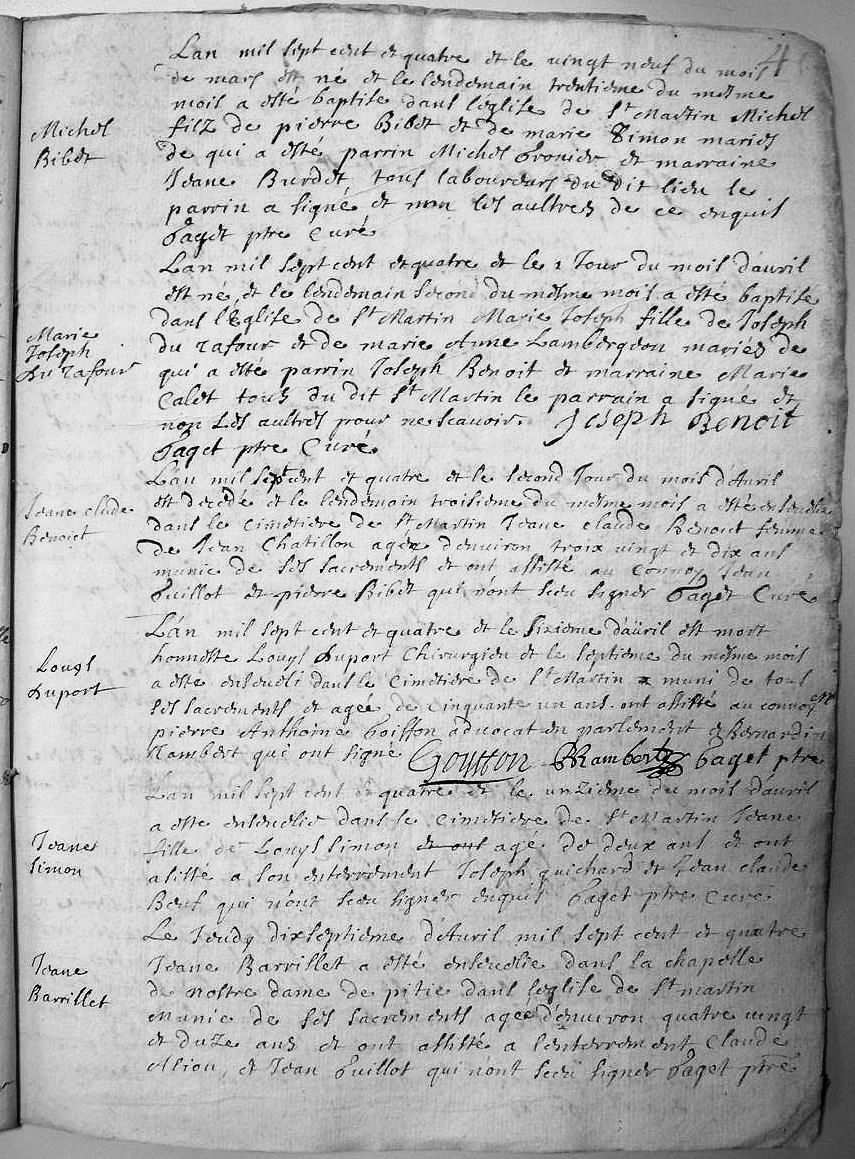 4
Lan mil sept cent et quatre et le vingt neuf du mois
de mars est né et le lendemain trentieme du mesme
mois a esté baptise dans leglise de St Martin Michel
Michel
Bibet
filz de pierre Bibet et de marie Simon mariés
de qui a esté parrin Michel et marraine
Jeane Burdet tous laboureurs du dit lieu le
parrin a signé et non les aultres de ce enquis
paget ptre Curé
Lan mil sept cent et quatre et le 1 Jour du mois dauril
est né et le lendemain second du mesme mois a esté baptisé
dans l'Eglise de St Martin Marie Joseph fille de Joseph
Marie
Joseph
du rafour
du rafour et de marie Anne Lambergeon mariés de
qui a esté parrin Joseph Benoit et marraine Marie
Calet tous du dit St Martin le parrain a signé et
non Les aultres pour ne scauoir Joseph Benoit
paget ptre Curé
Lan mil sept cent et quatre et le second Jour du mois d'Auril
est decedé et le lendemain troisieme du mesme mois a esté enseuelie
Jeane claude
Benoict
dans le Cimetiere de St Martin Jeane Claude Benoict femme
de Jean Chatillon agée d'enuiron troix vingt et dix ans
munie de ses sacrements et ont assisté au conuoy Jean
puillot et pierre Bibet qui n'ont sceu signer paget Curé
Lan mil sept cent et quatre et le sixieme d'auril est mort
Louys
duport
honneste Louys duport Chirurgien et le septieme du mesme mois
a este enseueli dans le Cimetiere de St Martin muni de tous
ses sacrements et agée de cinquante un ans ont assisté au conuoy
pierre Anthoine Goiffon aduocat en parlement et Bernardin
Rambert qui ont signé Goyffon BRambert paget ptre
Lan mil sept cent et quatre et le unzieme du mois d'auril
a este enseuelie dans le Cimetiere de St Martin Jeane
Jeane
Simon
fille de Louys Simon et ont agé de deux ans et ont
asisté a son enterrement Joseph guichard et Jean claude
Bœuf qui n'ont sceu signer enquis paget ptre Curé
Le Jeudy dixseptieme d'Auril mil sept cent et quatre
Jeane
Barrillet
Jeane Barrillet a esté enseuelie dans la chapelle
de nostre dame de pitie dans leglise de St martin
munie de ses sacrements agée d'enuiron quatre vingt
et duze ans et ont assisté a l'enterrement Claude
et Jean puillot qui n'ont sceu signer paget ptre